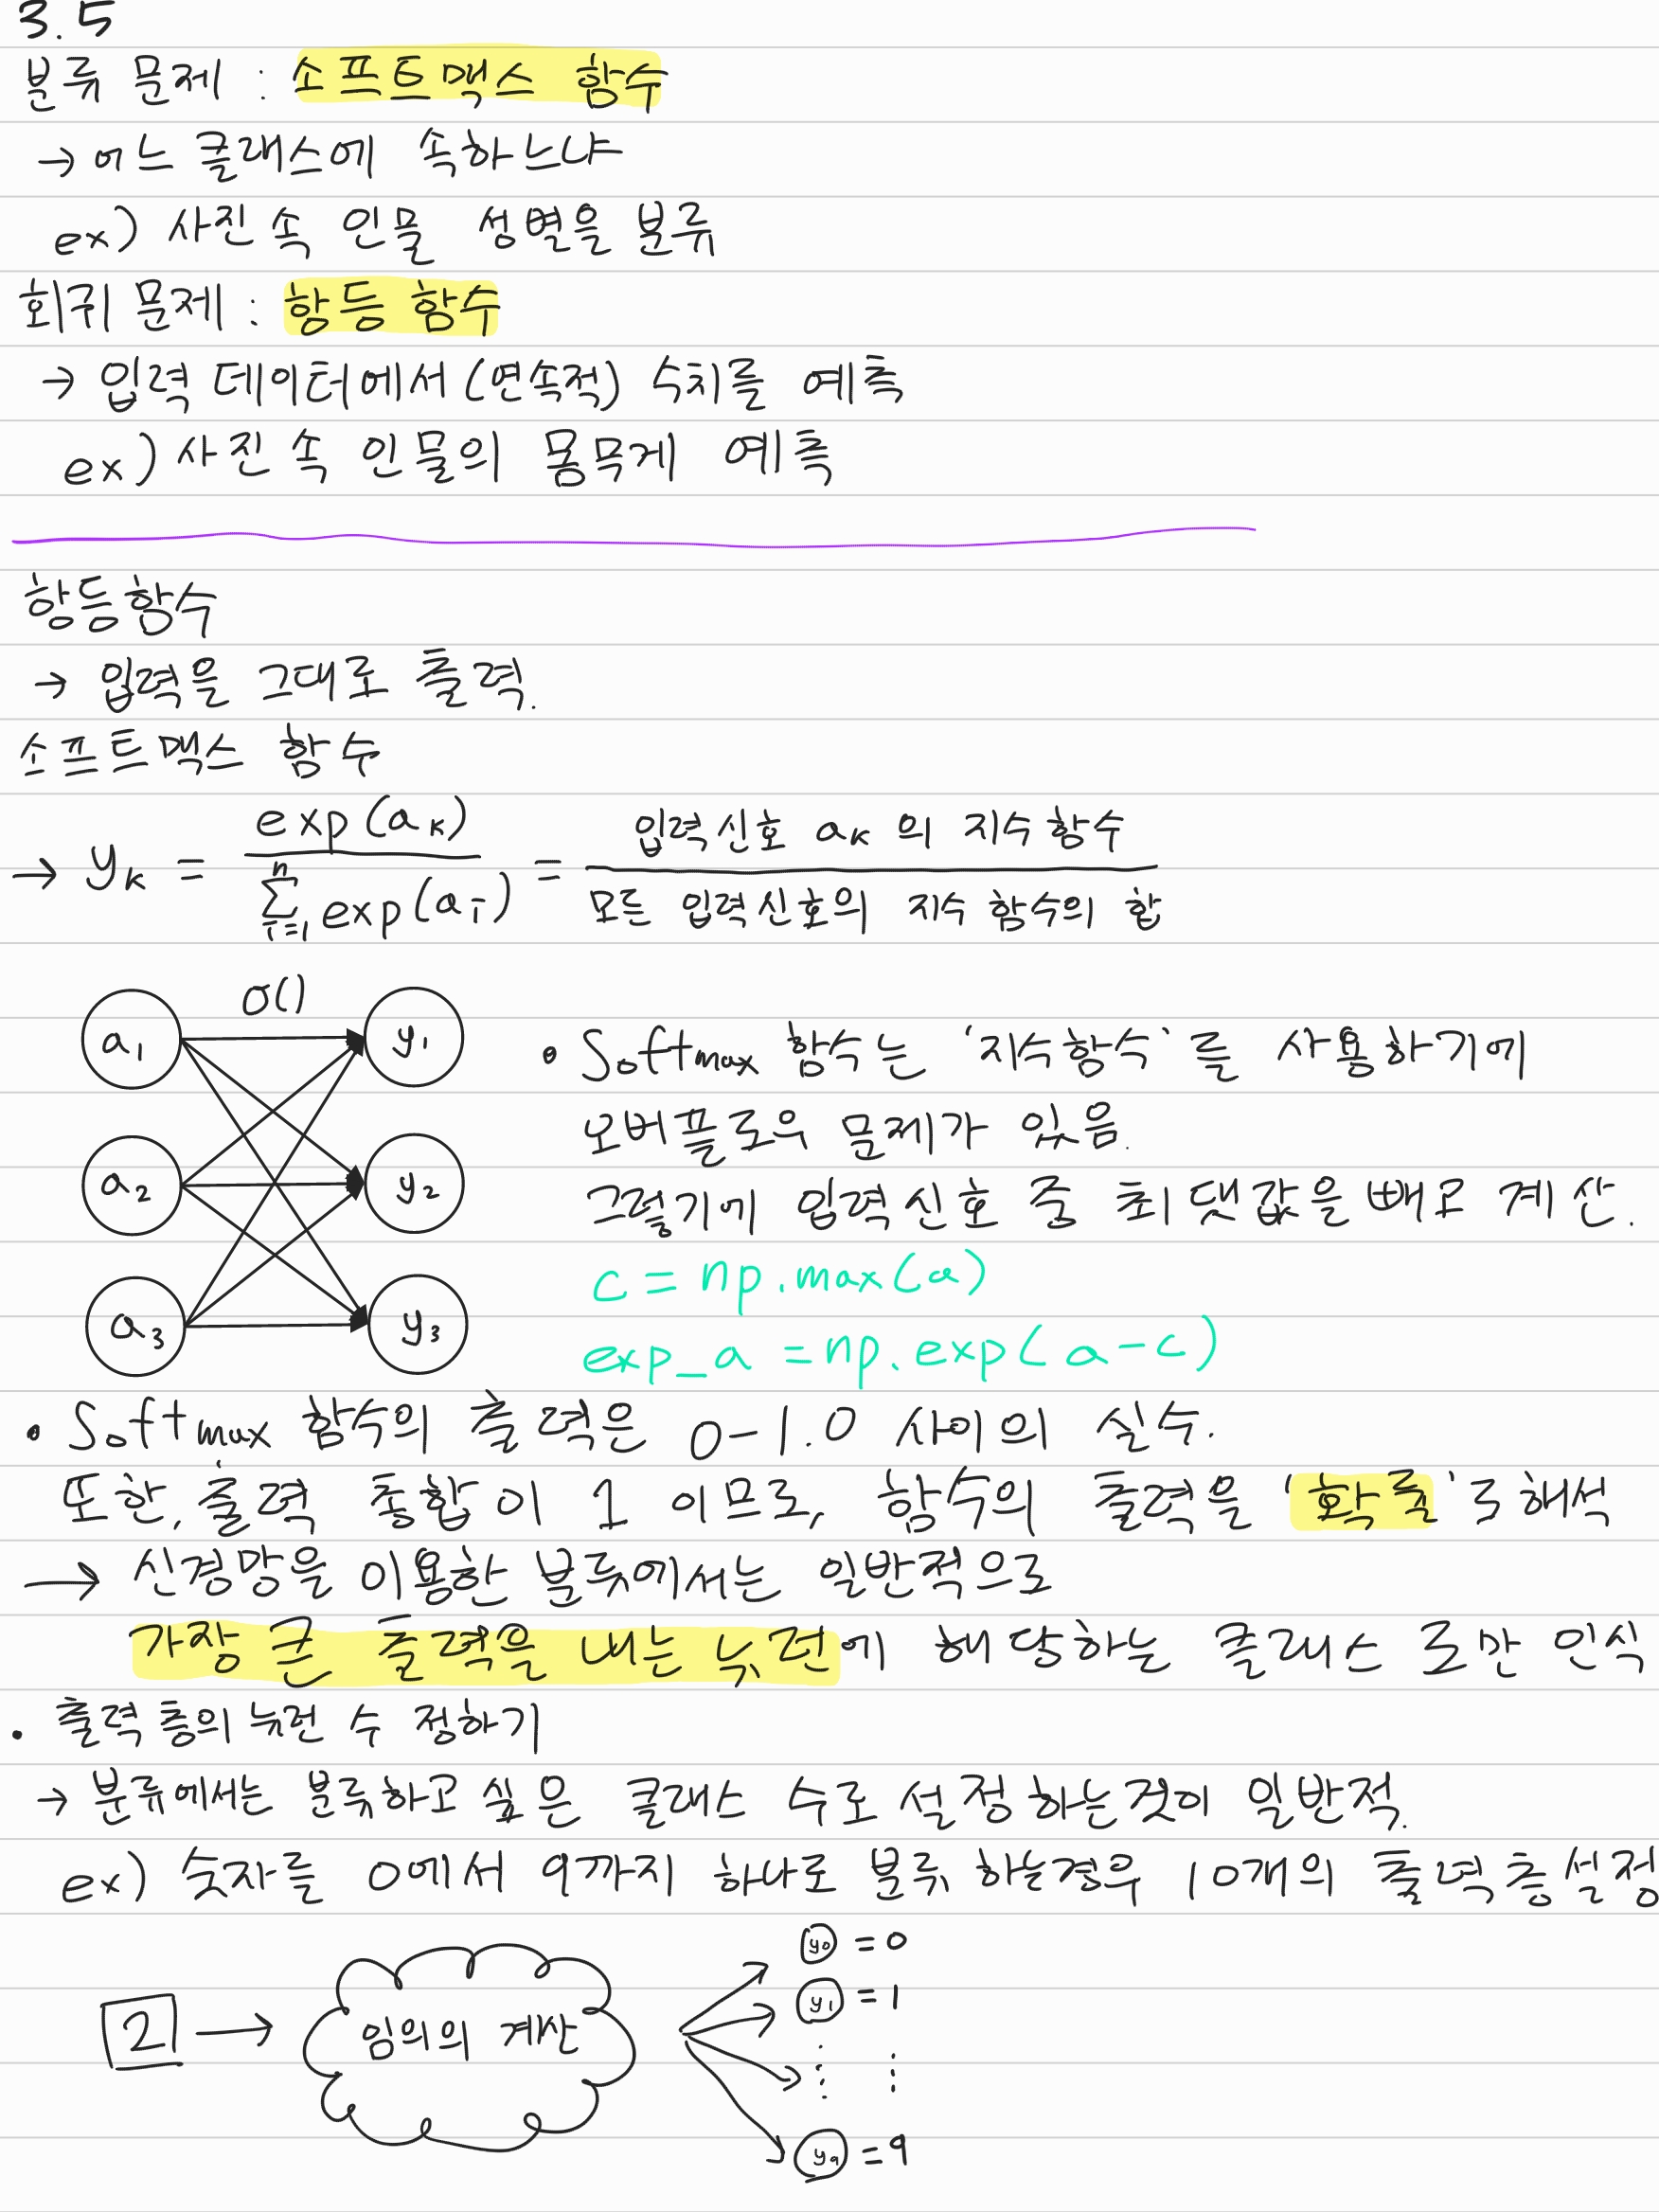 3.5
분류 문제 : 소프트맥스 함수
→ 어느 클래스에 속하느냐
ex) 사진 속 인물 성별을 분류
회귀 문제 : 항등 함수
→ 입력 데이터에서 (연속적) 수치를 예측
ex) 사진 속 인물의 몸무게 예측
항등함수
→ 입력을 그대로 출력.
소프트맥스 함수
→ yₖ = exp(aₖ) / Σⁿᵢ₌₁ exp(aᵢ) = 입력신호 aₖ의 지수 함수 / 모든 입력신호의 지수 함수의 합
σ()
a₁ y₁
a₂ y₂
a₃ y₃
• Softmax 함수는 '지수함수'를 사용하기에
오버플로우 문제가 있음.
그렇기에 입력신호 중 최댓값을 빼고 계산.
c = np.max(a)
exp_a = np.exp(a-c)
• Softmax 함수의 출력은 0-1.0 사이의 실수.
또한, 출력 총합이 1 이므로, 함수의 출력을 '확률'로 해석
→ 신경망을 이용한 분류에서는 일반적으로
가장 큰 출력을 내는 뉴런에 해당하는 클래스 로만 인식
• 출력층의 뉴런 수 정하기
→ 분류에서는 분류하고 싶은 클래스 수로 설정하는것이 일반적.
ex) 숫자를 0에서 9까지 하나로 분류 하는경우 10개의 출력층설정
2 → 임의의 계산
y₀ = 0
y₁ = 1
⋮ ⋮
y₉ = 9